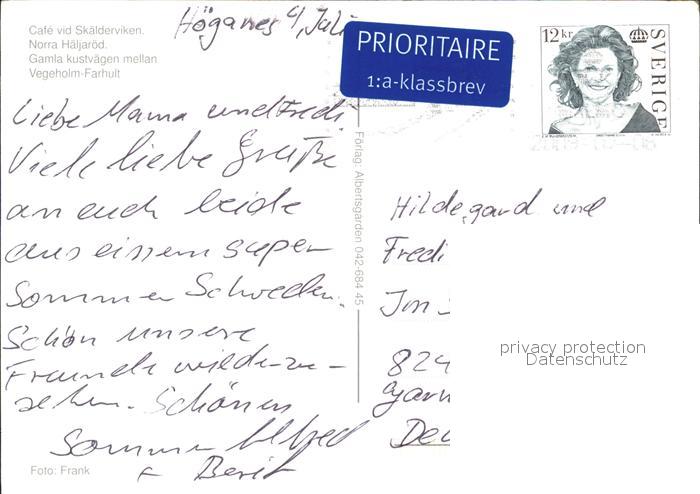 Café vid Skälderviken.
Norra Häljaröd.
Gamla kustvägen mellan
Vegeholm-Farhult
Höganes 4, Juli
PRIORITAIRE
1:a-klassbrev
12 kr
SVERIGE
Liebe Mama und Fredi
Viele liebe Grüße
an euch beide
aus einem super
Sommer Schweden.
Schön unsere
Freunde wiederzu-
sehen. Schönen
Sommer Alfred
+ Berit
Foto: Frank
Förlag: Albertsgarden 042-684 45
Hildegard und
Fredi
824
Garm
privacy protection
Datenschutz